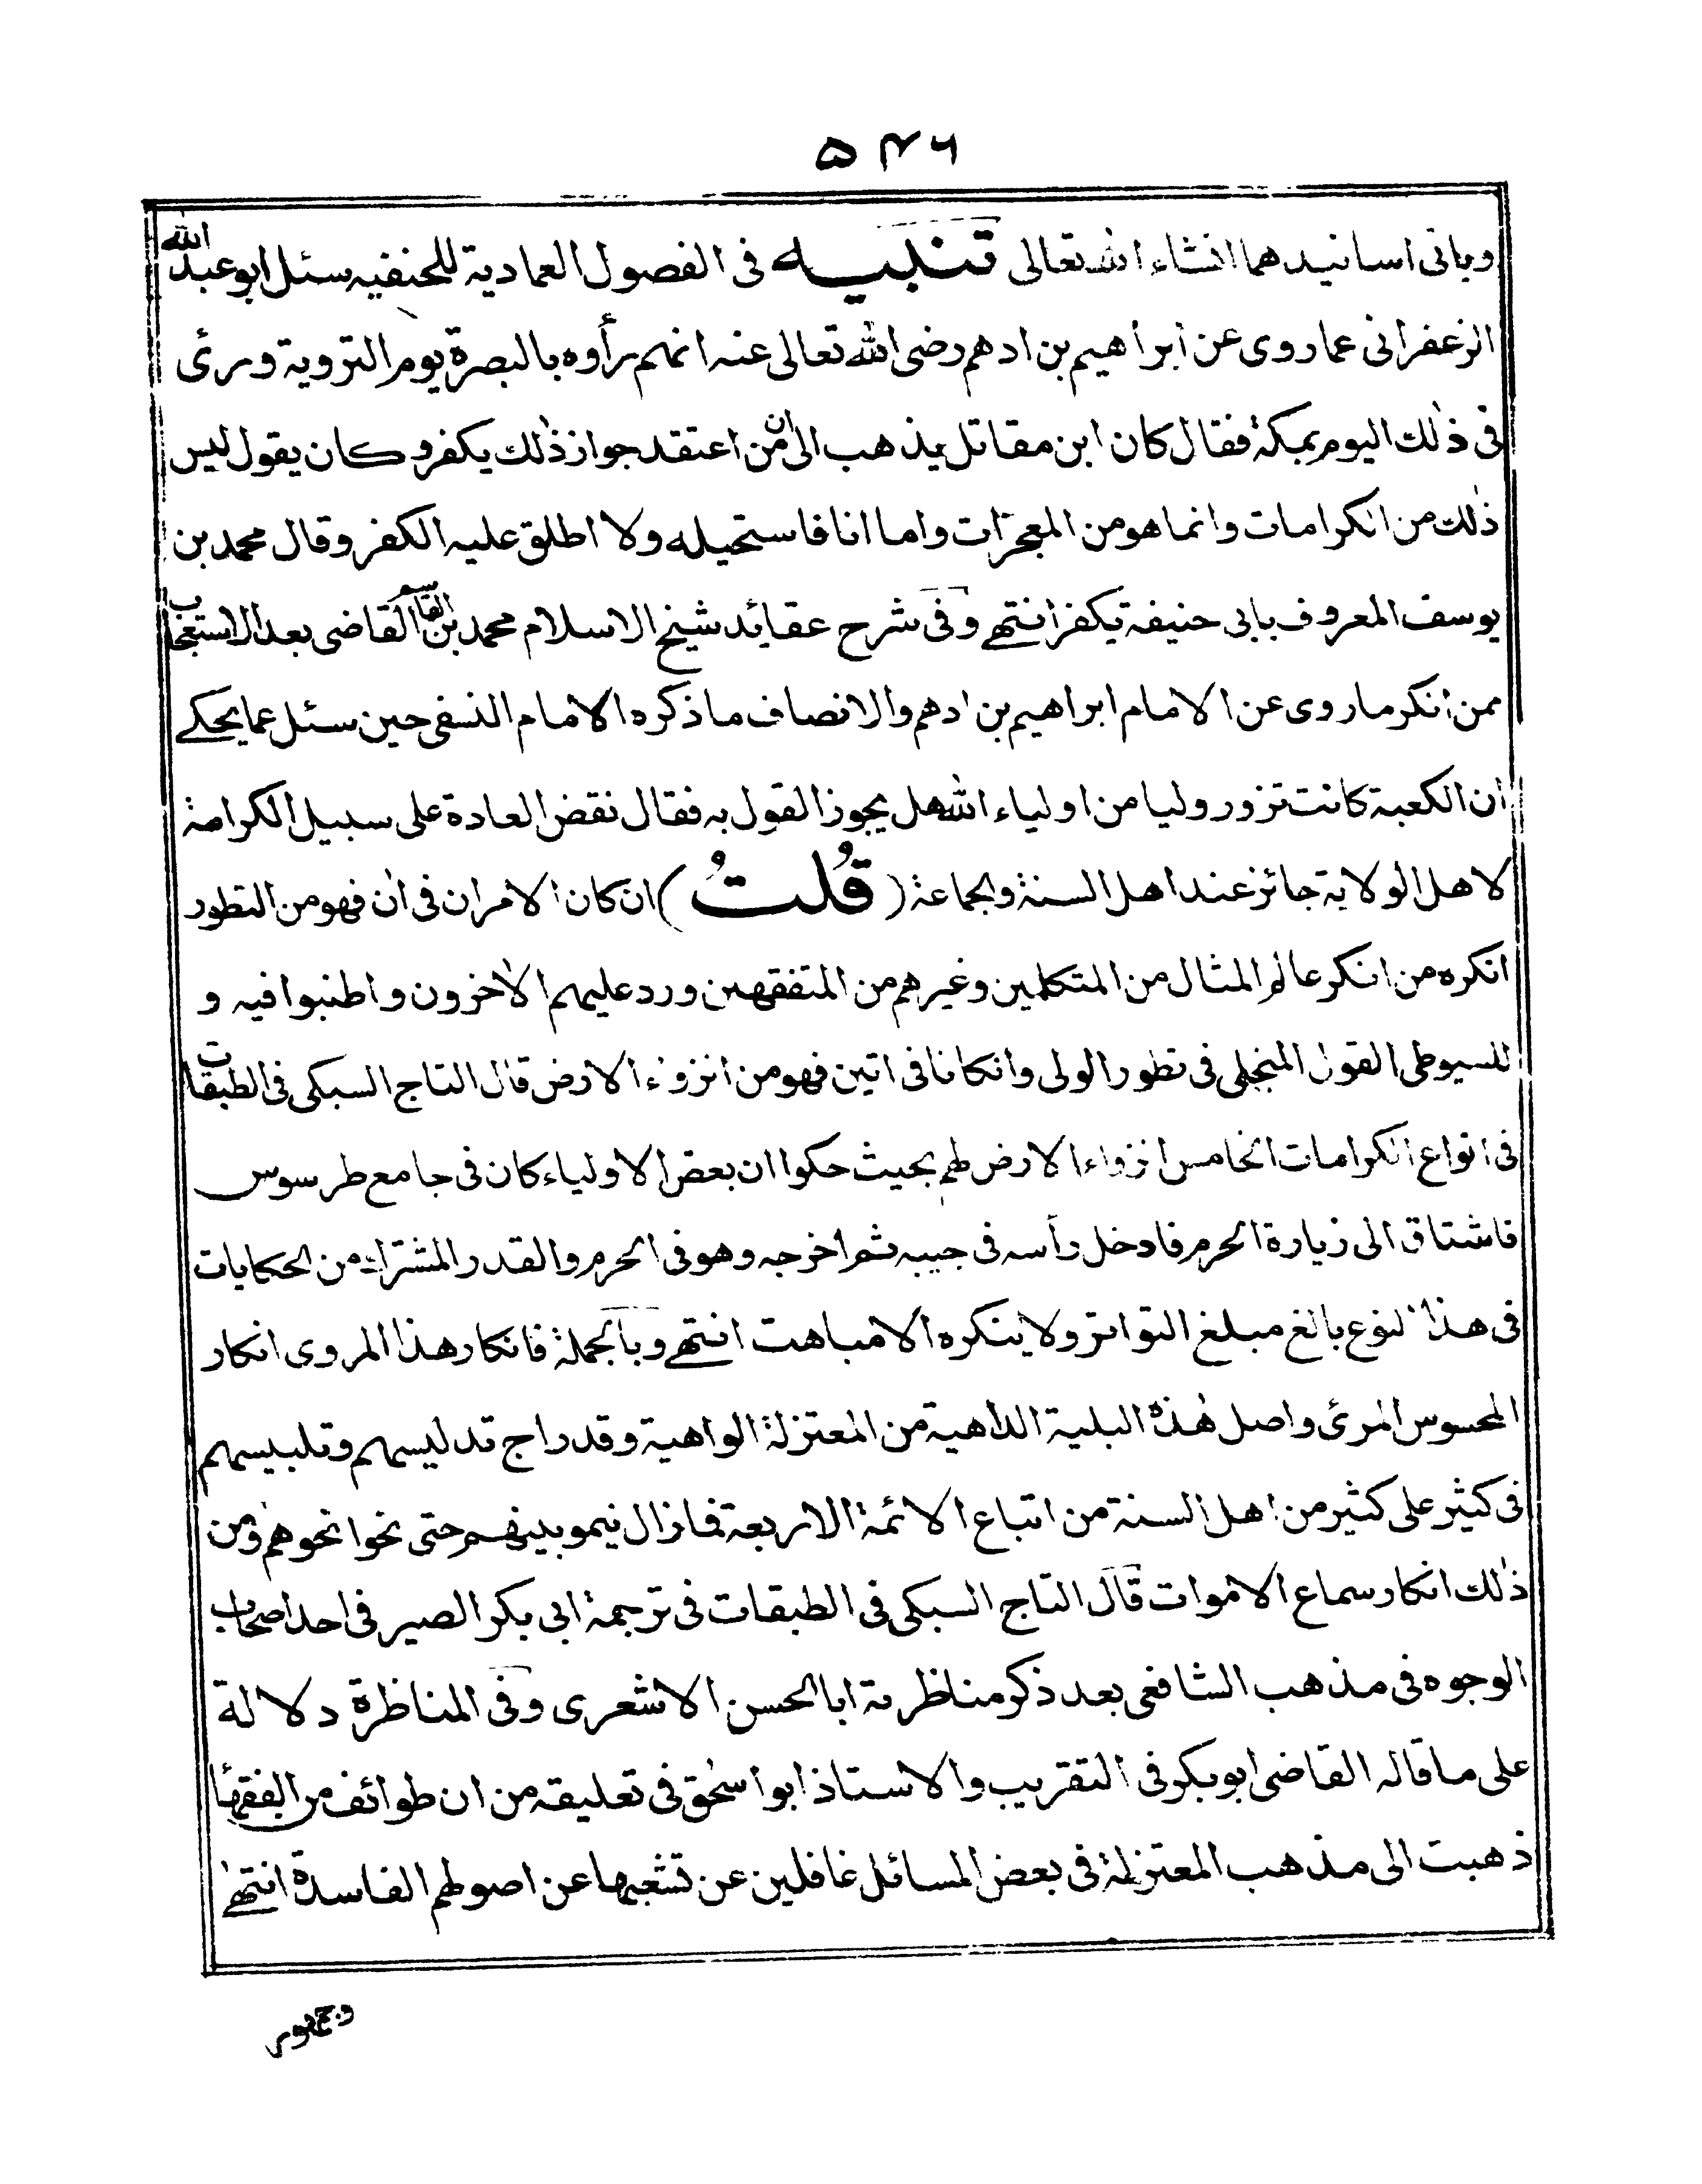 ۵۴۶
وياتى اسانيدهما انشاء الله تعالى تنبيه فى الفصول العمادية للحنفيه سئل ابو عبد الله
الزعفرانى عما روى عن ابراهيم بن ادهم رضى الله تعالى عنه انهم رأوه بالبصرة يوم التروية ورئى
فى ذلك اليوم بمكة فقال كان ابن مقاتل يذهب الى ان من اعتقد جواز ذلك يكفر وكان يقول ليس
ذلك من الكرامات وانما هو من المعجزات واما انا فاستحيله ولا اطلق عليه الكفر وقال محمد بن
يوسف المعروف بابى حنيفة يكفر انتهے وفى شرح عقائد شيخ الاسلام محمد بن القاسم القاضى بعد الاستعجاب
ممن انكر ما روى عن الامام ابراهيم بن ادهم والانصاف ما ذكره الامام النسفى حين سئل عما يحكے
ان الكعبة كانت تزور وليا من اولياء الله هل يجوز القول به فقال نقض العادة على سبيل الكرامة
لاهل الولاية جائز عند اهل السنة والجماعة (قُلتُ) ان كان الامران فى اٰن فهو من التطور
انكره من انكر عالم المثال من المتكلمين وغيرهم من المتفقهين ورد عليهم الاٰخرون واطنبوا فيه و
للسيوطى القول المنجلى فى تطور الولى وانكانا فى اتين فهو من انزواء الارض قال التاج السبكى فى الطبقات
فى انواع الكرامات الخامس انزواء الارض لهم بحيث حكوا ان بعض الاولياء كان فى جامع طرسوس
فاشتاق الى زيارة الحرم فادخل رأسه فى جيبه ثم اخرجه وهو فى الحرم والقدر المشترك من الحكايات
فى هذا النوع بالغ مبلغ التواتر ولا ينكره الا مباهت انتهے وبالجملة فانكار هذا المروى انكار
المحسوس المرئى واصل هٰذه البلية الداهية من المعتزلة الواهية وقد راج تدليسهم وتلبيسهم
فى كثير على كثير من اهل السنة من اتباع الائمة الاربعة فما زال ينمو بينهم حتى نحوا نحوهم ومن
ذلك انكار سماع الاموات قال التاج السبكى فى الطبقات فى ترجمة ابى بكر الصيرفى احد اصحاب
الوجوه فى مذهب الشافعى بعد ذكر مناظرته ابا الحسن الاشعرى وفى المناظرة دلالة
على ما قاله القاضى ابو بكر فى التقريب والاستاذ ابو اسحٰق فى تعليقه من ان طوائف من الفقهاء
ذهبت الى مذهب المعتزلة فى بعض المسائل غافلين عن تشعبها عن اصولهم الفاسدة انتهٰے